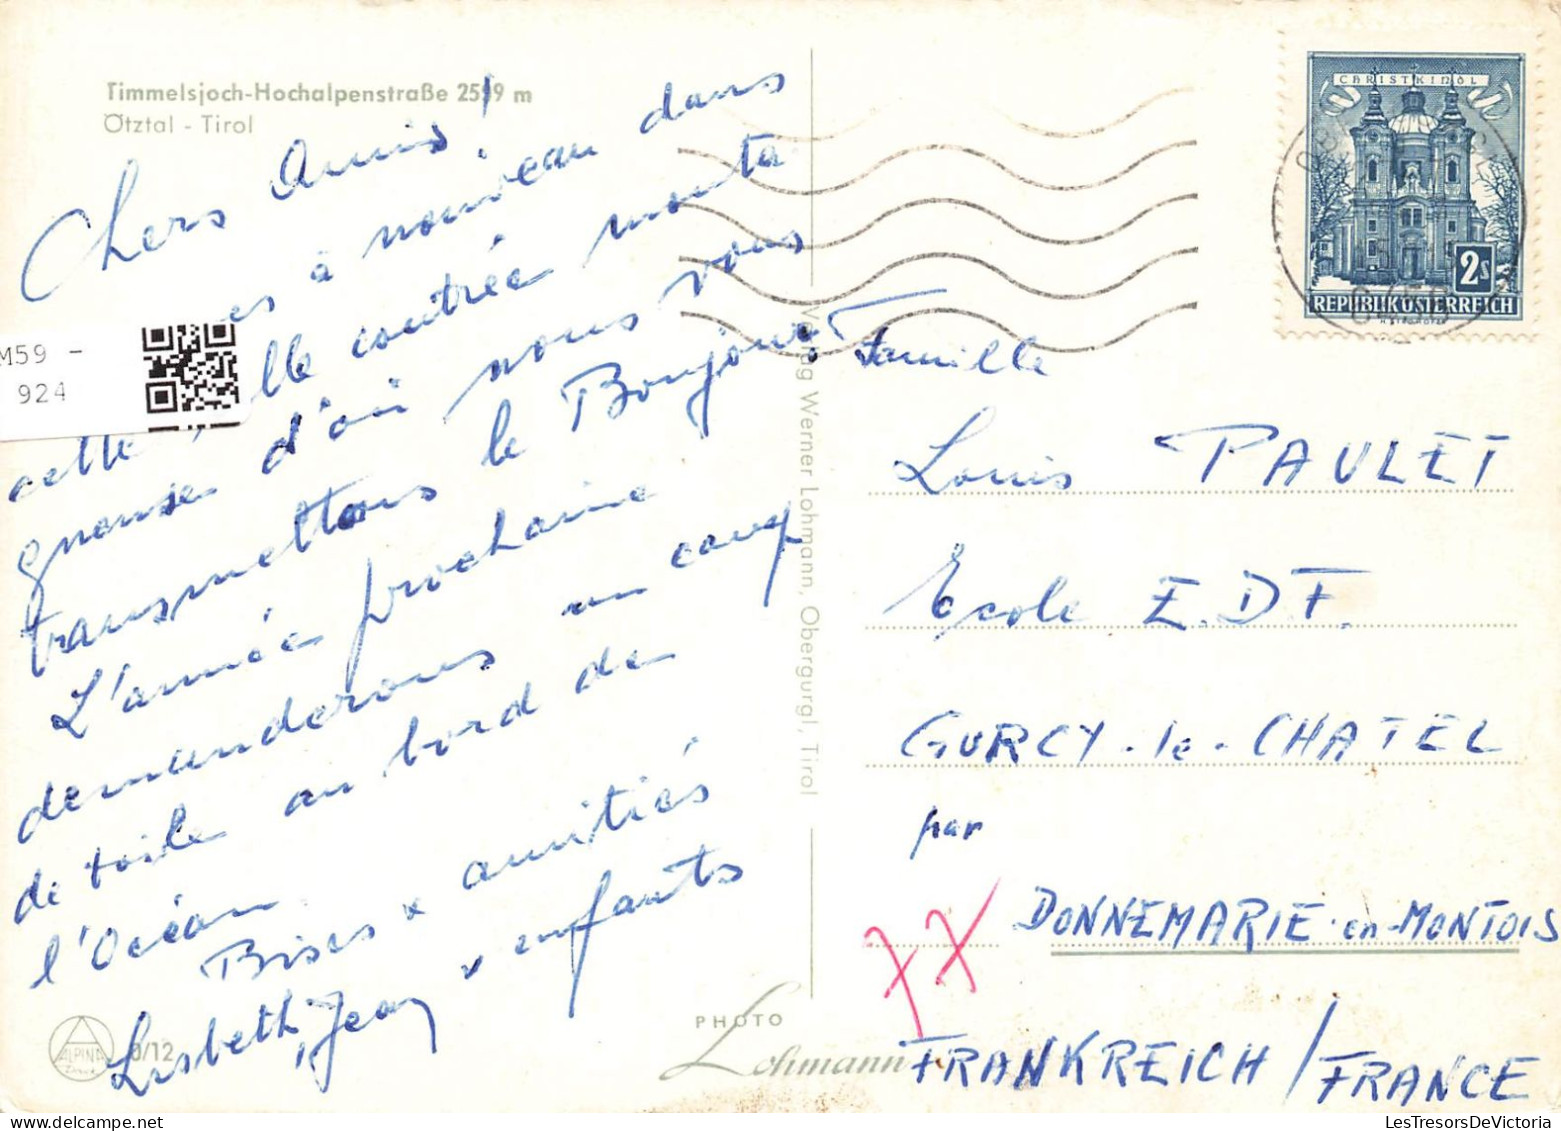 Timmelsjoch-Hochalpenstraße 2509 m
Ötztal - Tirol
Chers Amis!
à nouveau dans
cette lle contrée monta
gneuse d'où nous vous
transmettons le Bonjour!
L'année prochaine
demanderons un camp
de toile au bord de
l'Océan.
Bises x amitiés
Lisbeth, Jean x enfants
M59 -
924
Verlag Werner Lohmann, Obergurgl, Tirol
CHRISTKINDL
2s
REPUBLIK ÖSTERREICH
Famille
Louis PAULET
Ecole E.D.F.
GURCY-le-CHATEL
par
DONNEMARIE-en-MONTOIS
77
FRANKREICH / FRANCE
ALPINA
Druck
0/12
PHOTO
Lohmann
LesTresorsDeVictoria.com